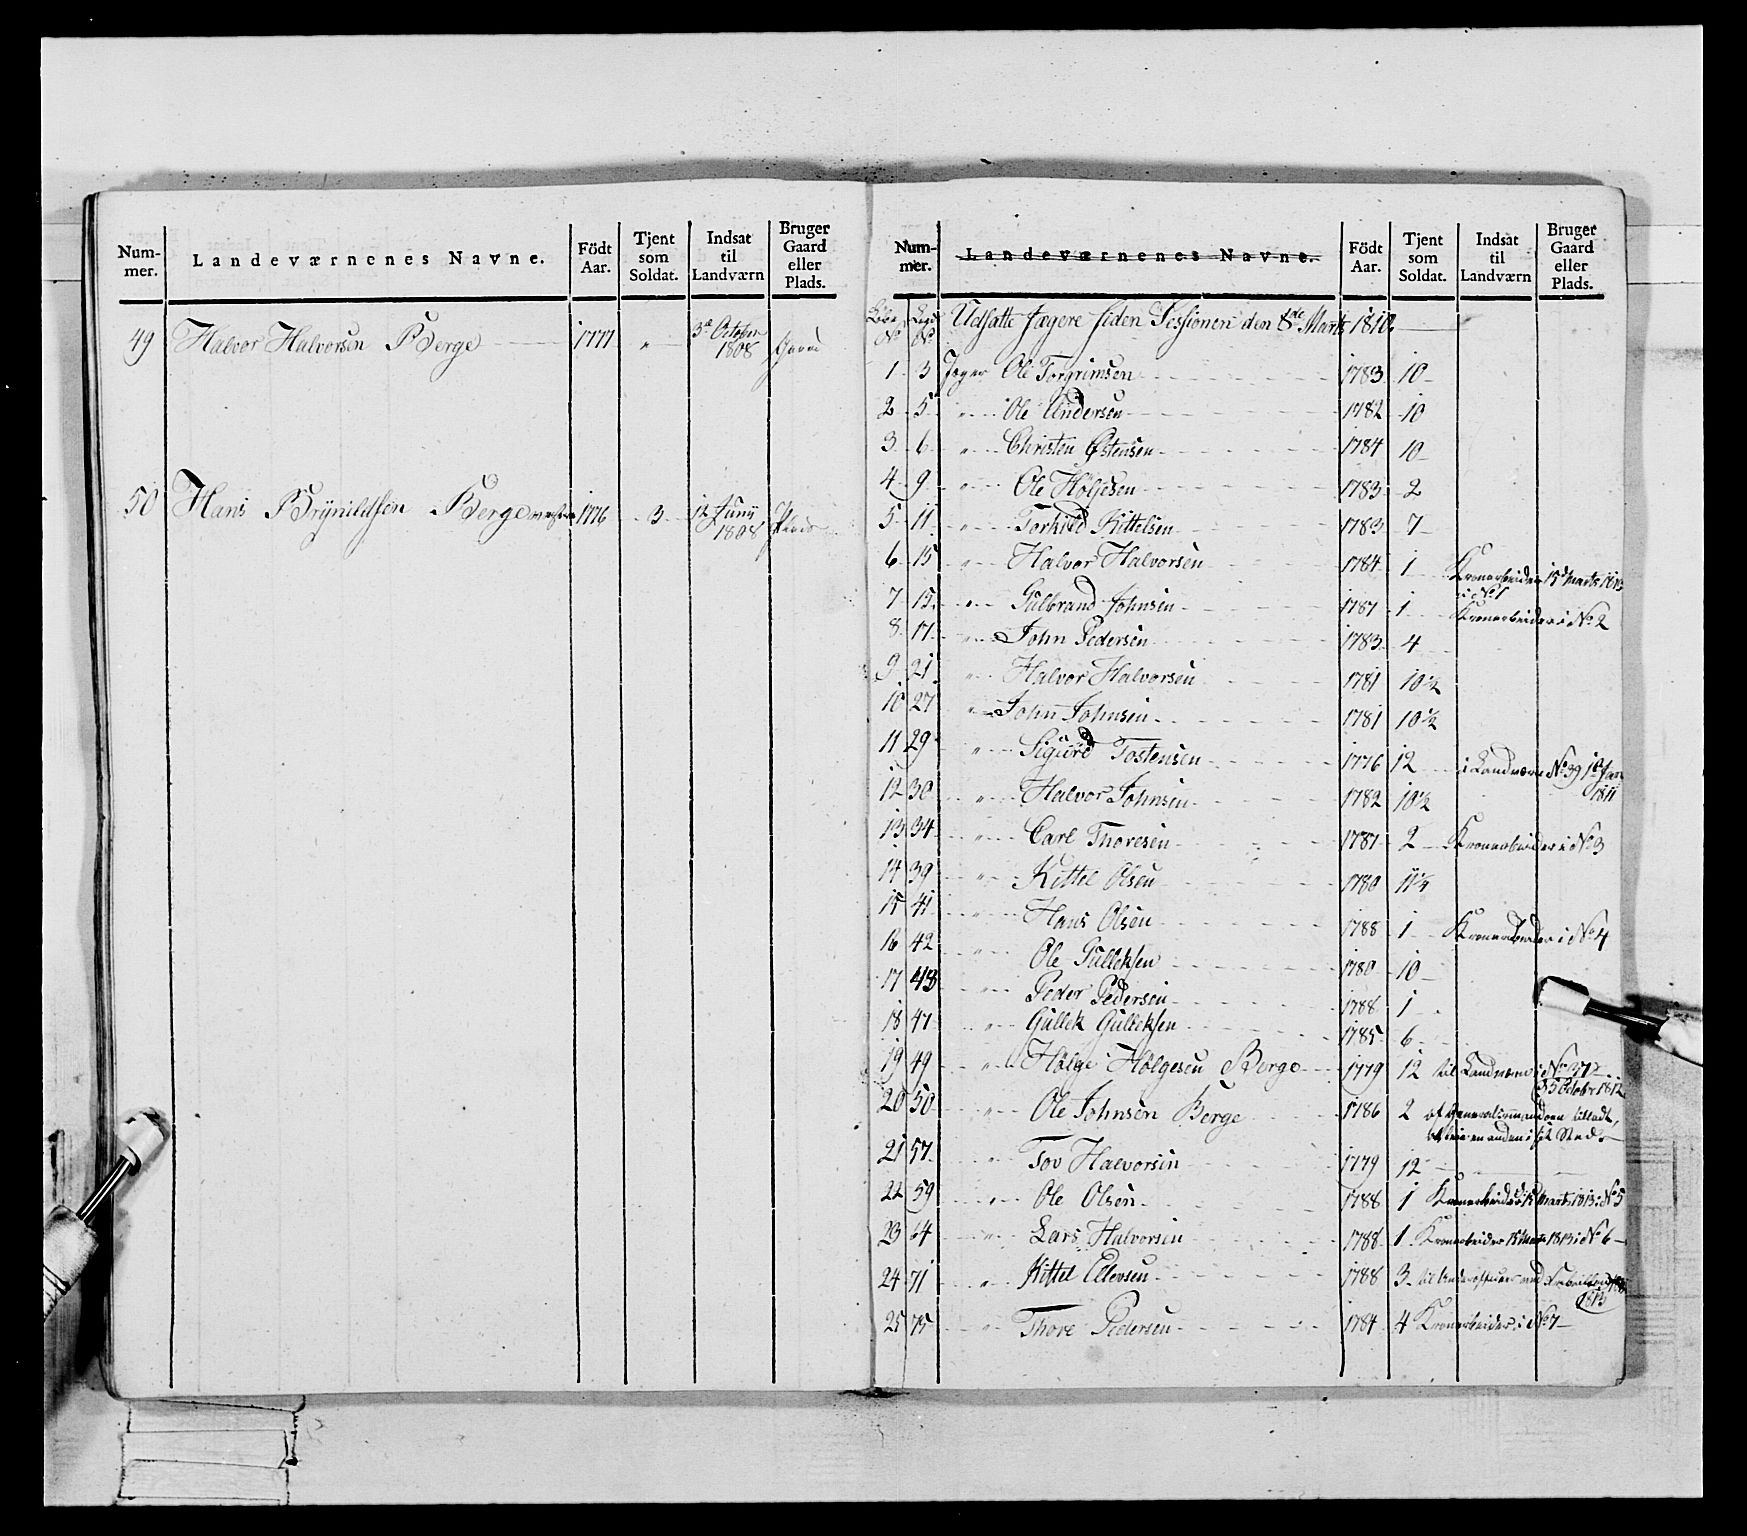 Num-
mer.
Landeværnenes Navne.
Födt
Aar.
Tjent
som
Soldat.
Indsat
til
Landværn
Bruger
Gaard
eller
Plads.
49 Halvor Halvorsen Berge 1777 " 3d October
1808 Gaard
50 Hans Brynildsen Berge 1776 3 12 Juny
1808 Plads
Num-
mer.
Landeværnenes Navne.
Födt
Aar.
Tjent
som
Soldat.
Indsat
til
Landværn
Bruger
Gaard
eller
Plads.
Løbe Lægd
No No
Udsatte Jægere siden Sessionen den 8de Marts 1810.
1 3 Jæger Ole Torgrimsen 1783 10
2 5 " Ole Andersen 1782 10
3 6 " Christen Østensen 1784 10
4 9 " Ole Høljesen 1783 2
5 11 " Torkild Kittelsen 1783 7
6 15 " Halvor Halvorsen 1784 1 Kronarbeider 15d Marts 1813
i No 1
7 15 " Gulbrand Johnsen 1787 1 Kronarbeider i No 2
8 17 " John Pedersen 1783 4
9 21 " Halvor Halvorsen 1781 10½
10 27 " John Johnsen 1781 10½
11 29 " Sigurd Tostensen 1776 12 i Landværn No 39 1d Jan
1811
12 30 " Halvor Johnsen 1782 10½
13 34 " Carl Thoresen 1787 2 Kronarbeider i No 3
14 39 " Kittel Olsen 1780 11½
15 41 " Hans Olsen 1788 1 Kronarbeider i No 4
16 42 " Ole Gulleksen 1780 10
17 43 " Peder Pedersen 1788 1
18 47 " Gullek Gulleksen 1785 6
19 49 " Hølge Hølgesen Berge 1779 12 til Landværn i No 37
October 1812
20 50 " Ole Johnsen Berge 1786 2 af Generalcommandoen tilladt,
at leie en anden i sit Sted.
21 57 " Tov Halvorsen 1779 12
22 59 " Ole Olsen 1788 1 Kronarbeider 15 Marts 1813 i No 5
23 64 " Lars Halvorsen 1788 1 Kronarbeider 15 Marts 1813 i No 6
24 71 " Kittel Ellevsen 1788 3 til Underofficer ved
1813
25 75 " Thore Pedersen 1784 4 Kronarbeider i No 7